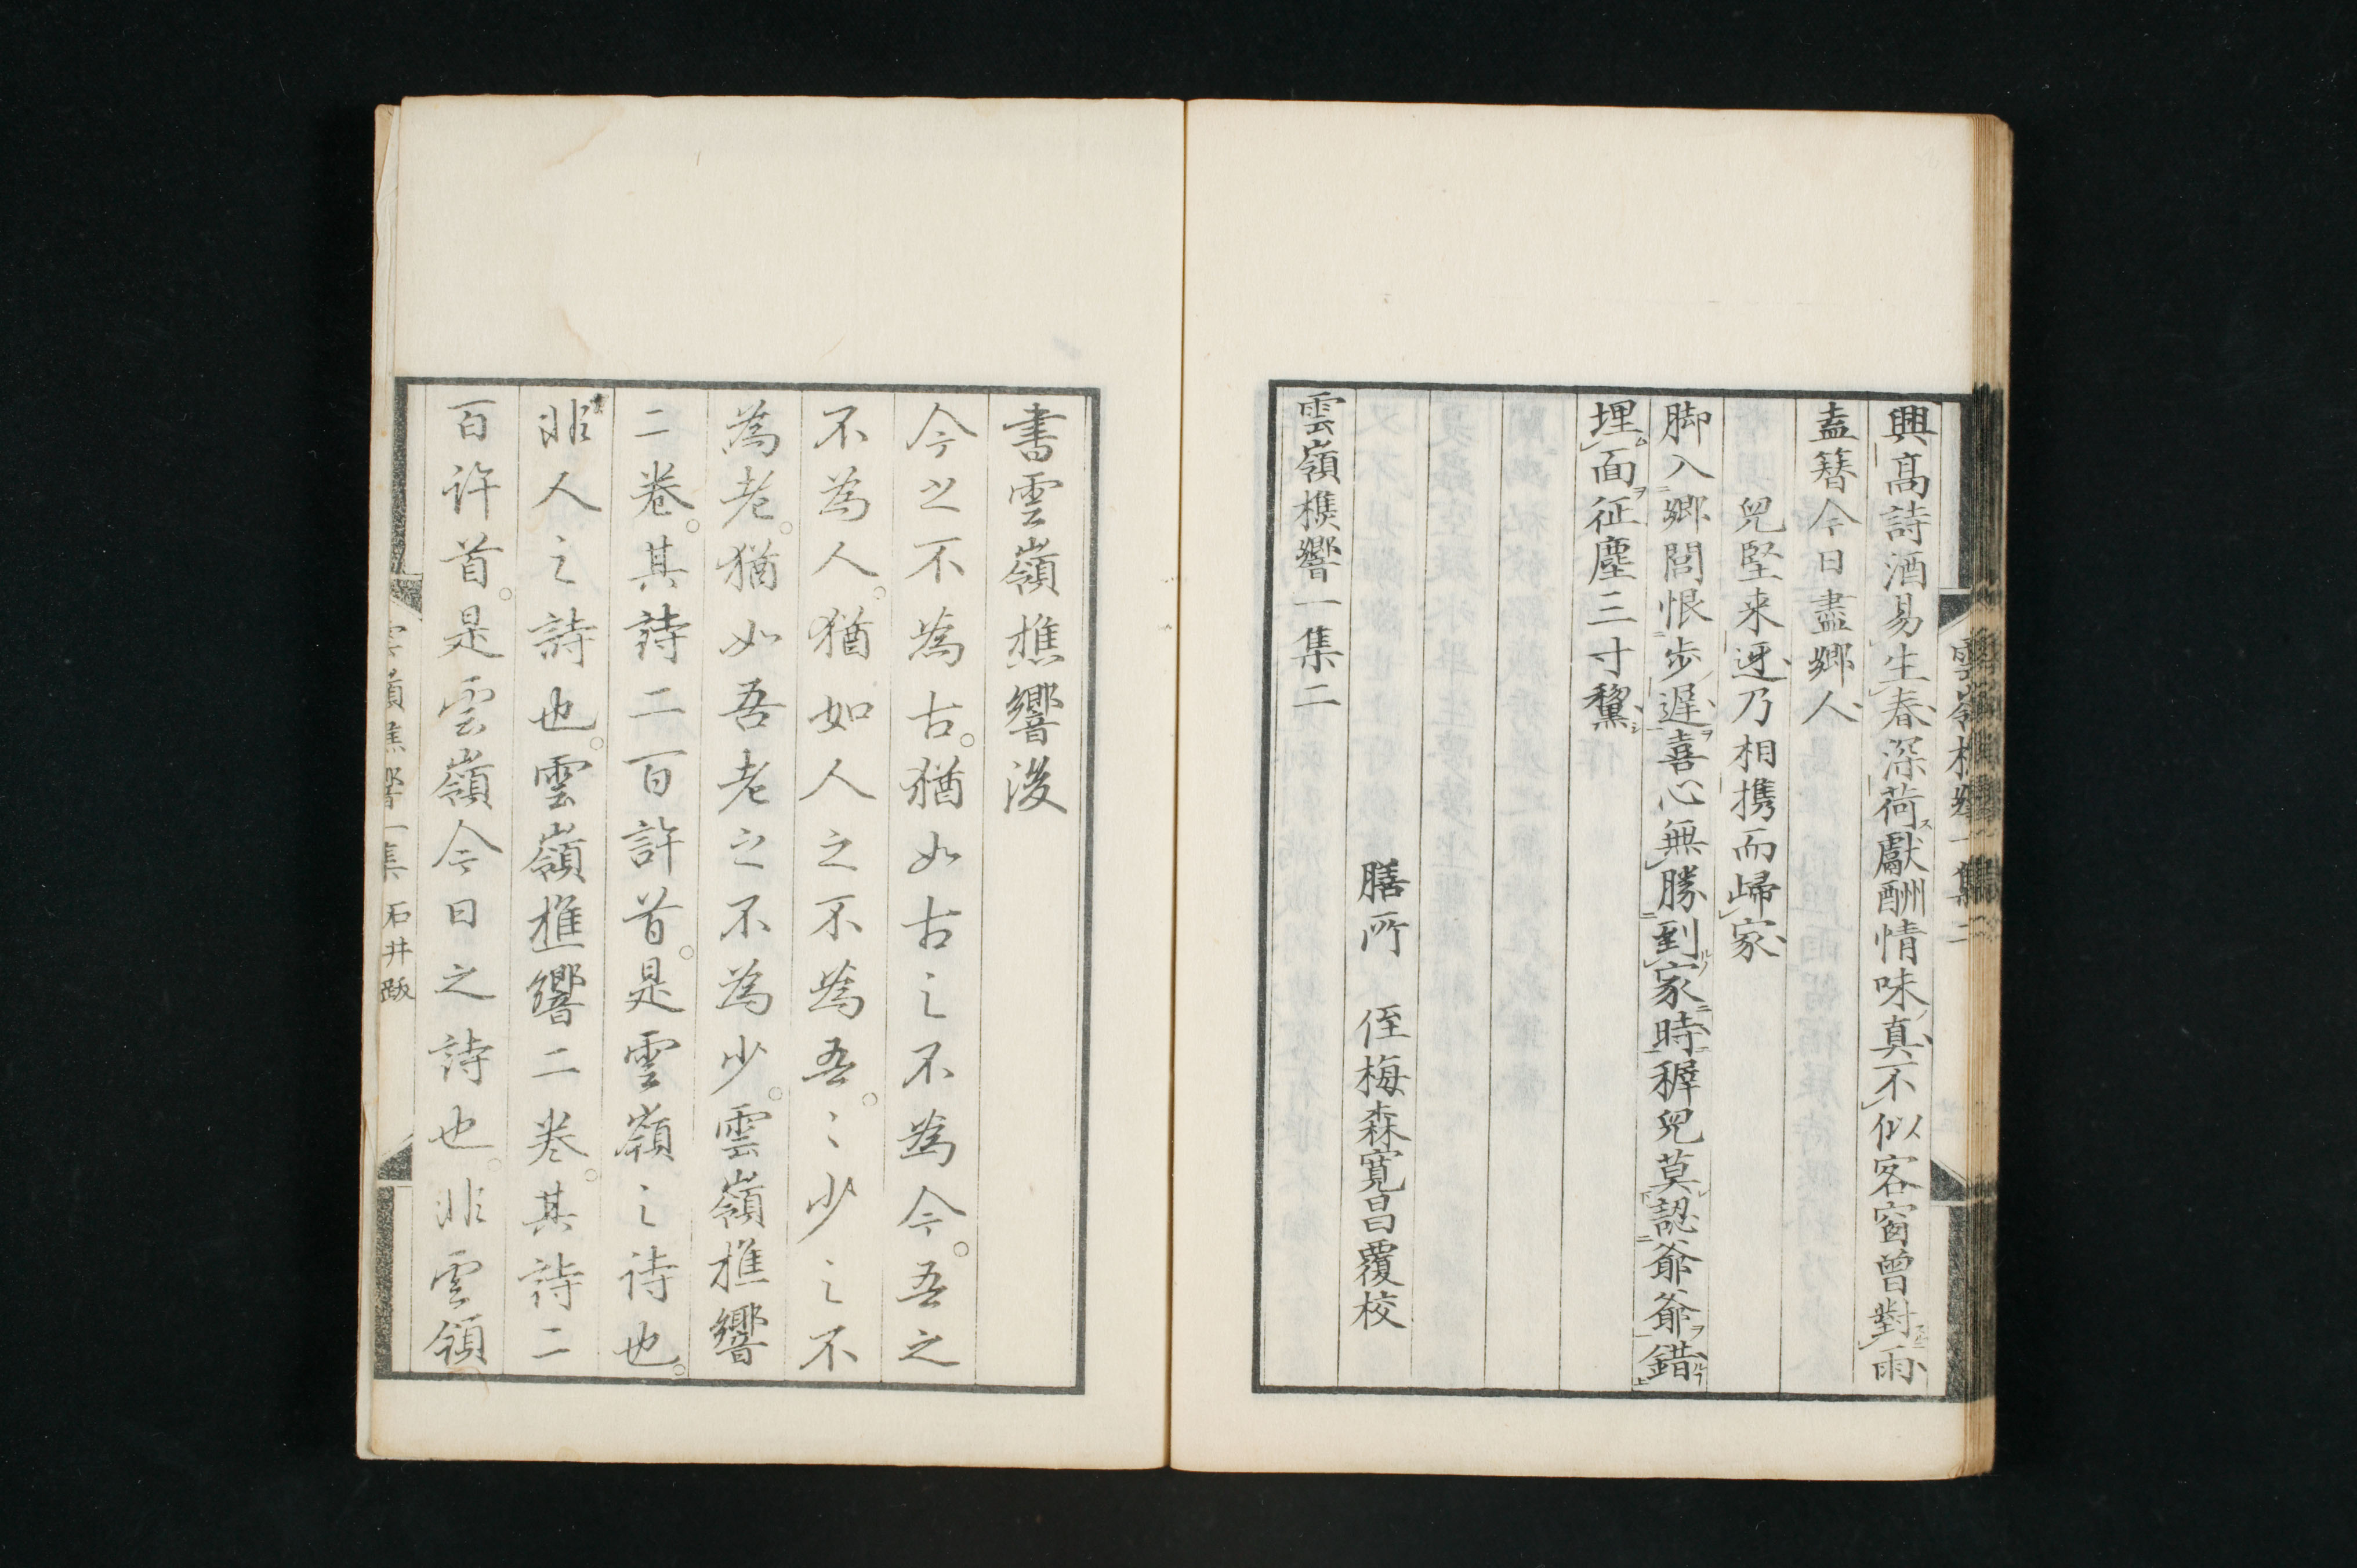 興高詩酒易生春深荷獻酬情味真不似客窗曾對雨
盍簪今日盡郷人
兒堅来迓乃相携而歸家
脚入郷閭恨歩遅喜心無勝到家時穉兒莫認爺爺錯
埋面征塵三寸黧
膳所　侄梅森寛昌覆校
雲嶺樵響一集二
書雲嶺樵響後
今之不為古。猶如古之不為今。吾之
不為人。猶如人之不為吾。〻少之不
為老。猶如吾老之不為少。雲嶺樵響
二卷。其詩二百許首。是雲嶺之詩也。
非人之詩也。雲嶺樵響二卷。其詩二
百許首。是雲嶺今日之詩也。非雲領
雲嶺樵響一集　石井跋